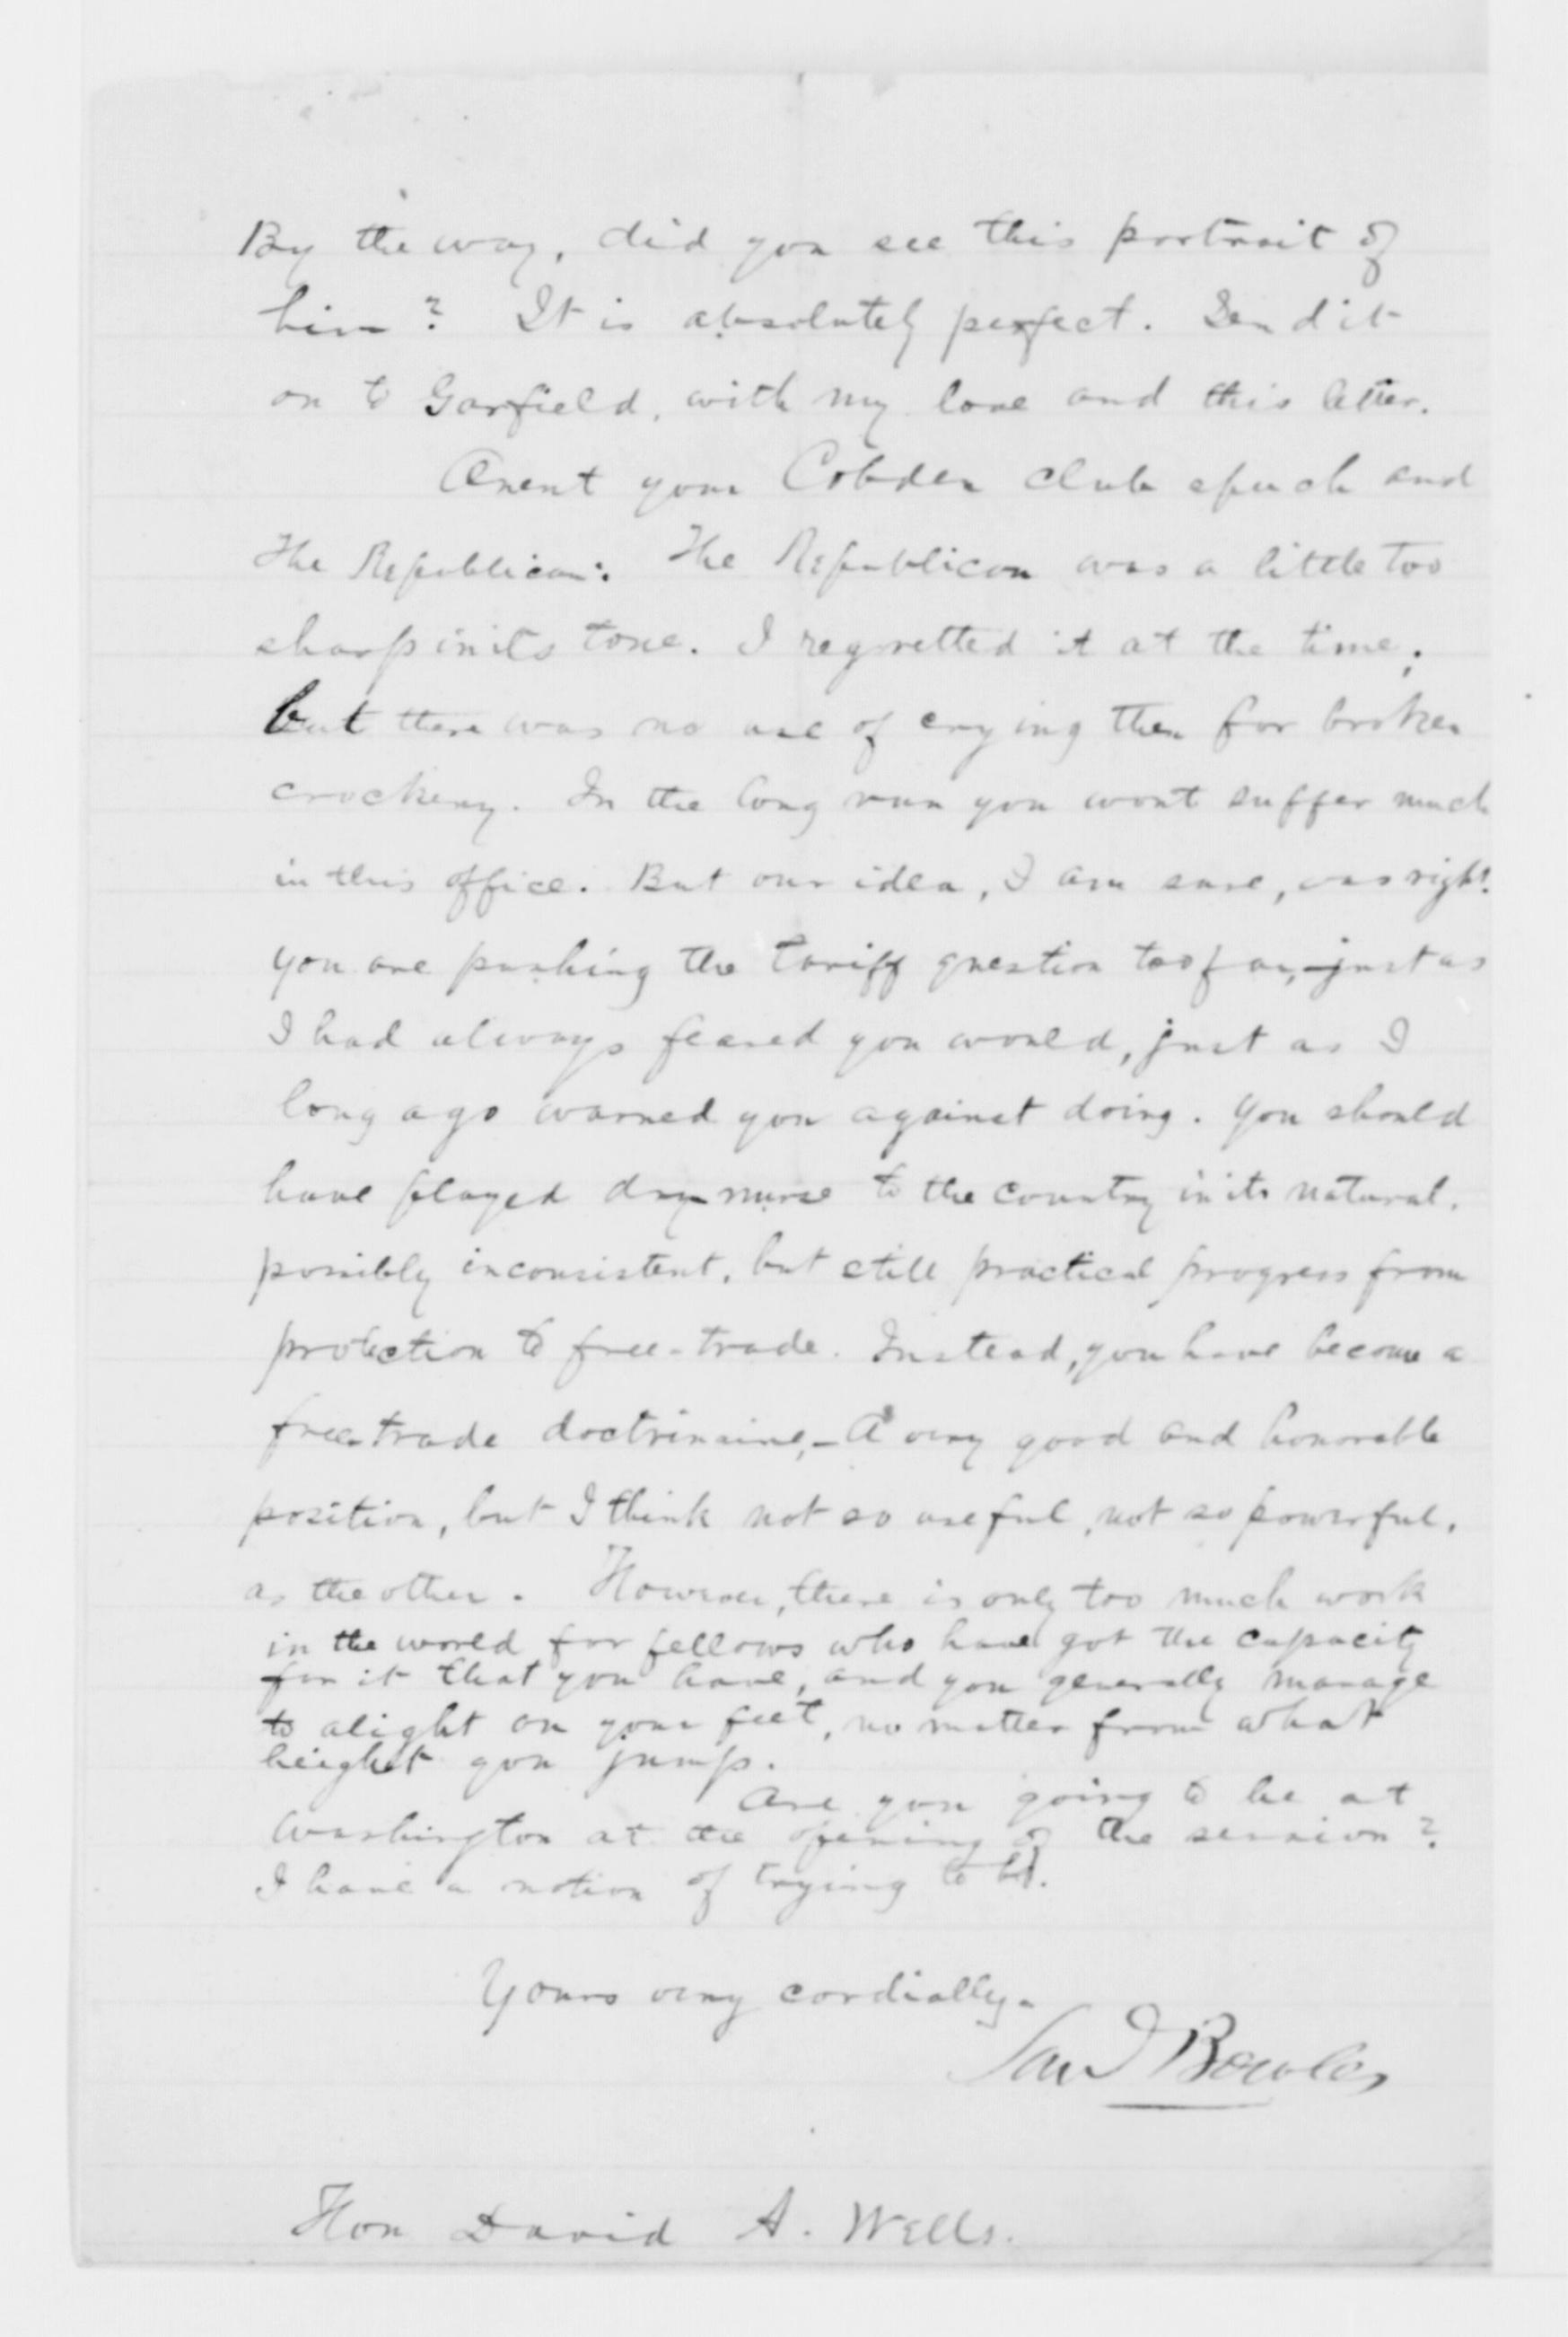 By the way, did you see this portrait of
him? It is absolutely perfect. Send it
on to Garfield, with my love and this letter.
Anent your Cobden Club speech and
The Republican: The Republican was a little too
sharp in its tone. I regretted it at the time;
but there was no use of crying then for broken
crockery. In the long run you wont suffer much
in this office. But our idea, I am sure, was right.
You are pushing the tariff question too far,—just as
I had always feared you would, just as I
long ago warned you against doing. You should
have played dry-nurse to the country in its natural,
possibly inconsistent, but still practical progress from
protection to free-trade. Instead, you have become a
free-trade doctrinaire,—A very good and honorable
position, but I think not so useful, not so powerful,
as the other. However, there is only too much work
in the world for fellows who have got the capacity
for it that you have, and you generally manage
to alight on your feet, no matter from what
height you jump.
Are you going to be at
Washington at the opening of the session?
I have a notion of trying to be.
Yours very cordially,
Saml Bowles
Hon David A. Wells.